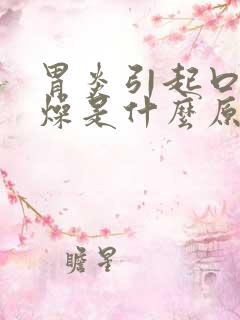 胃炎引起口
燥是什麼原
瞻星